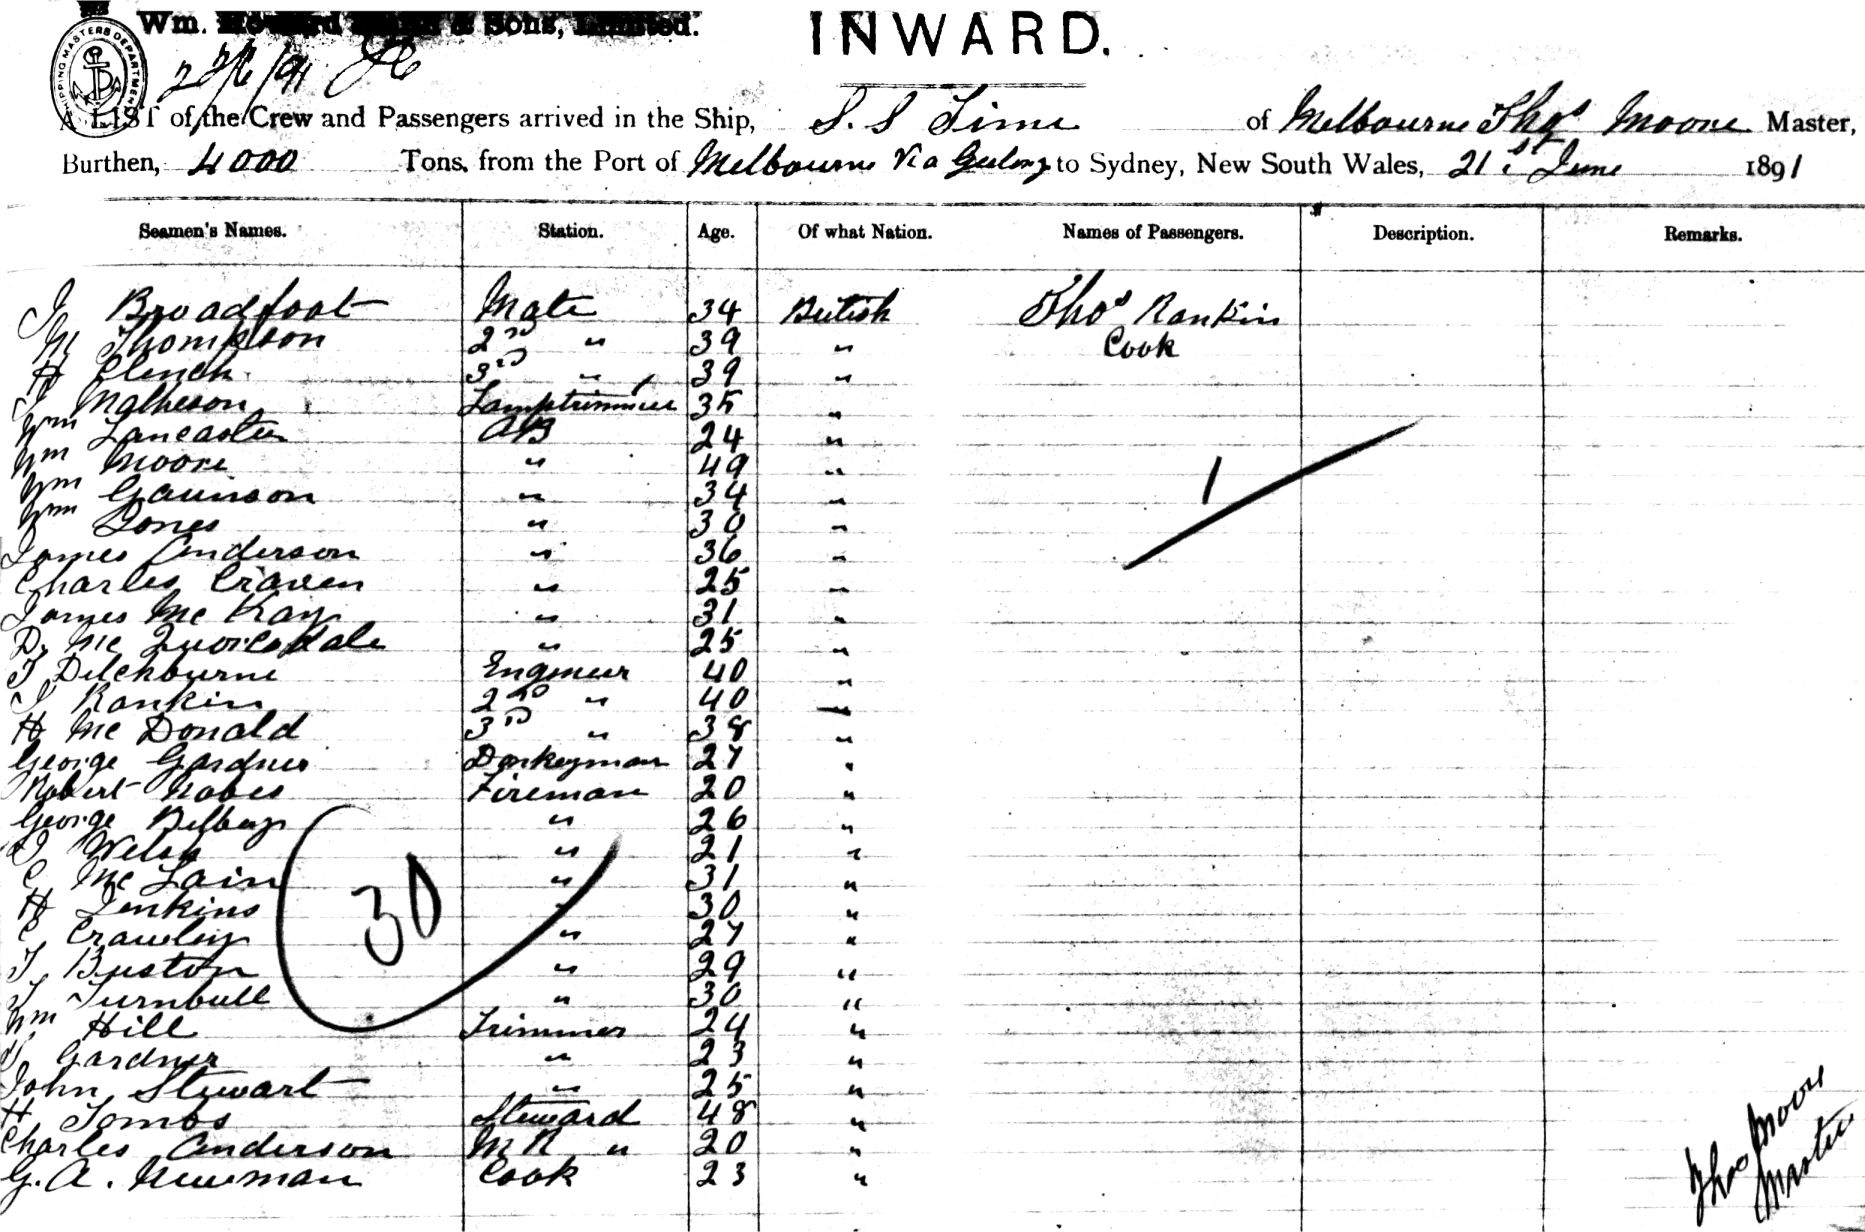 Wm. Howard Smith & Sons, Limited.
INWARD.
SHIPPING MASTERS DEPARTMENT
22/6/91
A LIST of the Crew and Passengers arrived in the Ship, S. S Time of Melbourne Thos Moore Master,
Burthen, 4000 Tons, from the Port of Melbourne Via Geelong to Sydney, New South Wales, 21st June 1891
Seamen's Names. Station. Age. Of what Nation. Names of Passengers. Description. Remarks.
J Broadfoot Mate 34 British Thos Rankin
M Thompson 2nd " 39 " Cook
H Clench 3rd " 39 "
J Matheson Lamptrimmer 35 "
Wm Lancaster AB 24 "
Wm Moore " 49 "
Wm Gaunson " 34 "
Wm Jones " 30 "
James Anderson " 36 "
Charles Craven " 25 "
James McKay " 31 "
D. Mc " 25 "
T Ditchburne Engineer 40 "
J Rankin 2nd " 40 "
H McDonald 3rd " 38 "
George Gardner Donkeyman 27 "
Robert Nobes Fireman 20 "
George " 26 "
Welsh " 21 "
C McLain " 31 "
H Jenkins " 30 "
C Crawley " 27 "
T. Buston " 29 "
T Turnbull " 30 "
Wm Hill Trimmer 24 "
Gardner " 23 "
John Stewart " 25 "
H Tombs Steward 48 "
Charles Anderson M R " 20 "
G. A. Newman Cook 23 "
1
30
Thos Moore
Master